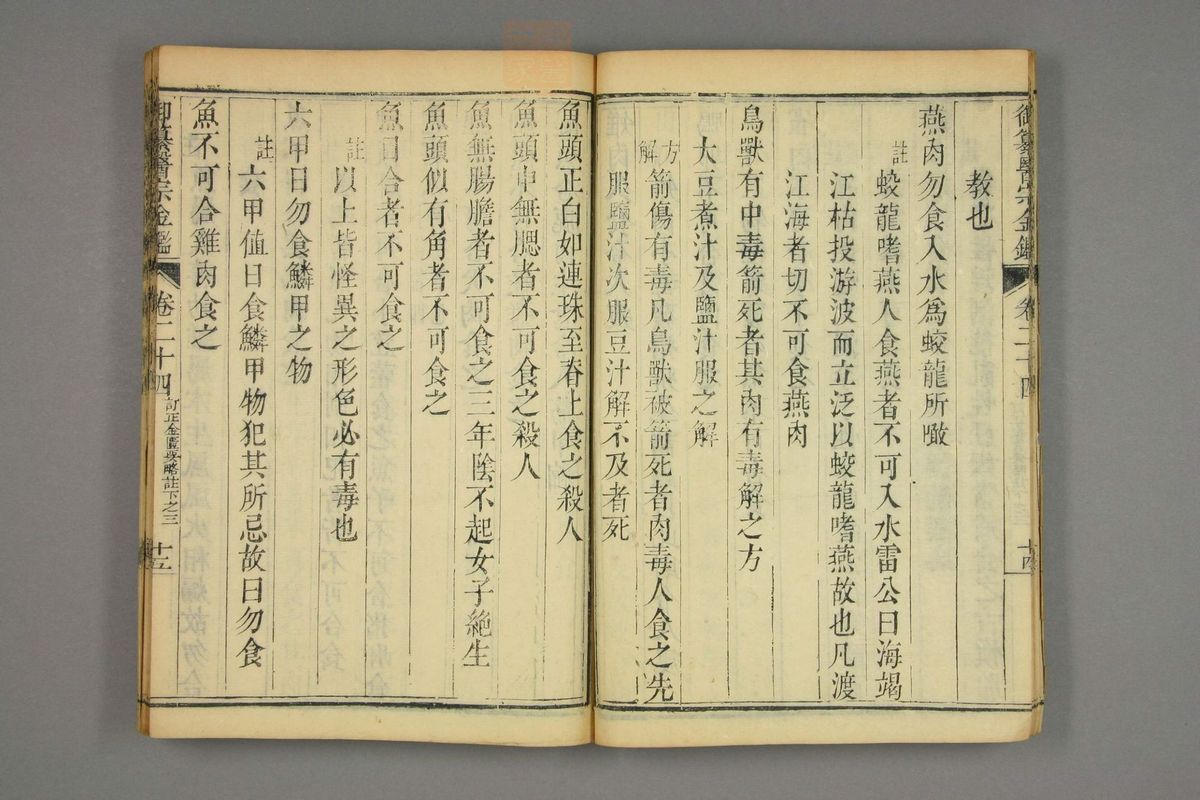 御纂醫宗金鑑
卷二十四
十四
教也
燕肉勿食入水為蛟龍所噉
註
蛟龍嗜燕人食燕者不可入水雷公曰海竭
江枯投游波而立泛以蛟龍嗜燕故也凡渡
江海者切不可食燕肉
鳥獸有中毒箭死者其肉有毒解之方
大豆煮汁及鹽汁服之解
方解
箭傷有毒凡鳥獸被箭死者肉毒人食之先
服鹽汁次服豆汁解不及者死
魚頭正白如連珠至脊上食之殺人
魚頭中無腮者不可食之殺人
魚無腸膽者不可食之三年陰不起女子絶生
魚頭似有角者不可食之
魚目合者不可食之
註
以上皆怪異之形色必有毒也
六甲日勿食鱗甲之物
註
六甲值日食鱗甲物犯其所忌故曰勿食
魚不可合雞肉食之
御纂醫宗金鑑
卷二十四
訂正金匱要略註下之三
十五